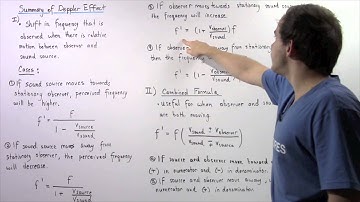 Summary of Doppler Effect
I). Shift in frequency that is
observed when there is relative
motion between observer and
sound source.
Cases:
① If sound source moves towards
stationary observer, perceived frequency
will be higher.
f' = f / (1 - Vsource/Vsound)
② If sound source moves away from
stationary observer, the perceived frequency
will decrease.
f' = f / (1 + Vsource/Vsound)
③ If observer moves towards stationary sound source
the frequency will increase.
f' = (1 + Vobserver/Vsound) f
If observer away from stationary
then the frequency
f' = (1 -
II). Combined Formula
• Useful for when observer and
are both moving.
f' = f (Vsound ± Vobserver / Vsound ∓ Vsource)
If source and observer move toward
numerator and (-) in denominator.
If source and observer move away
numerator and (+) in denominator.